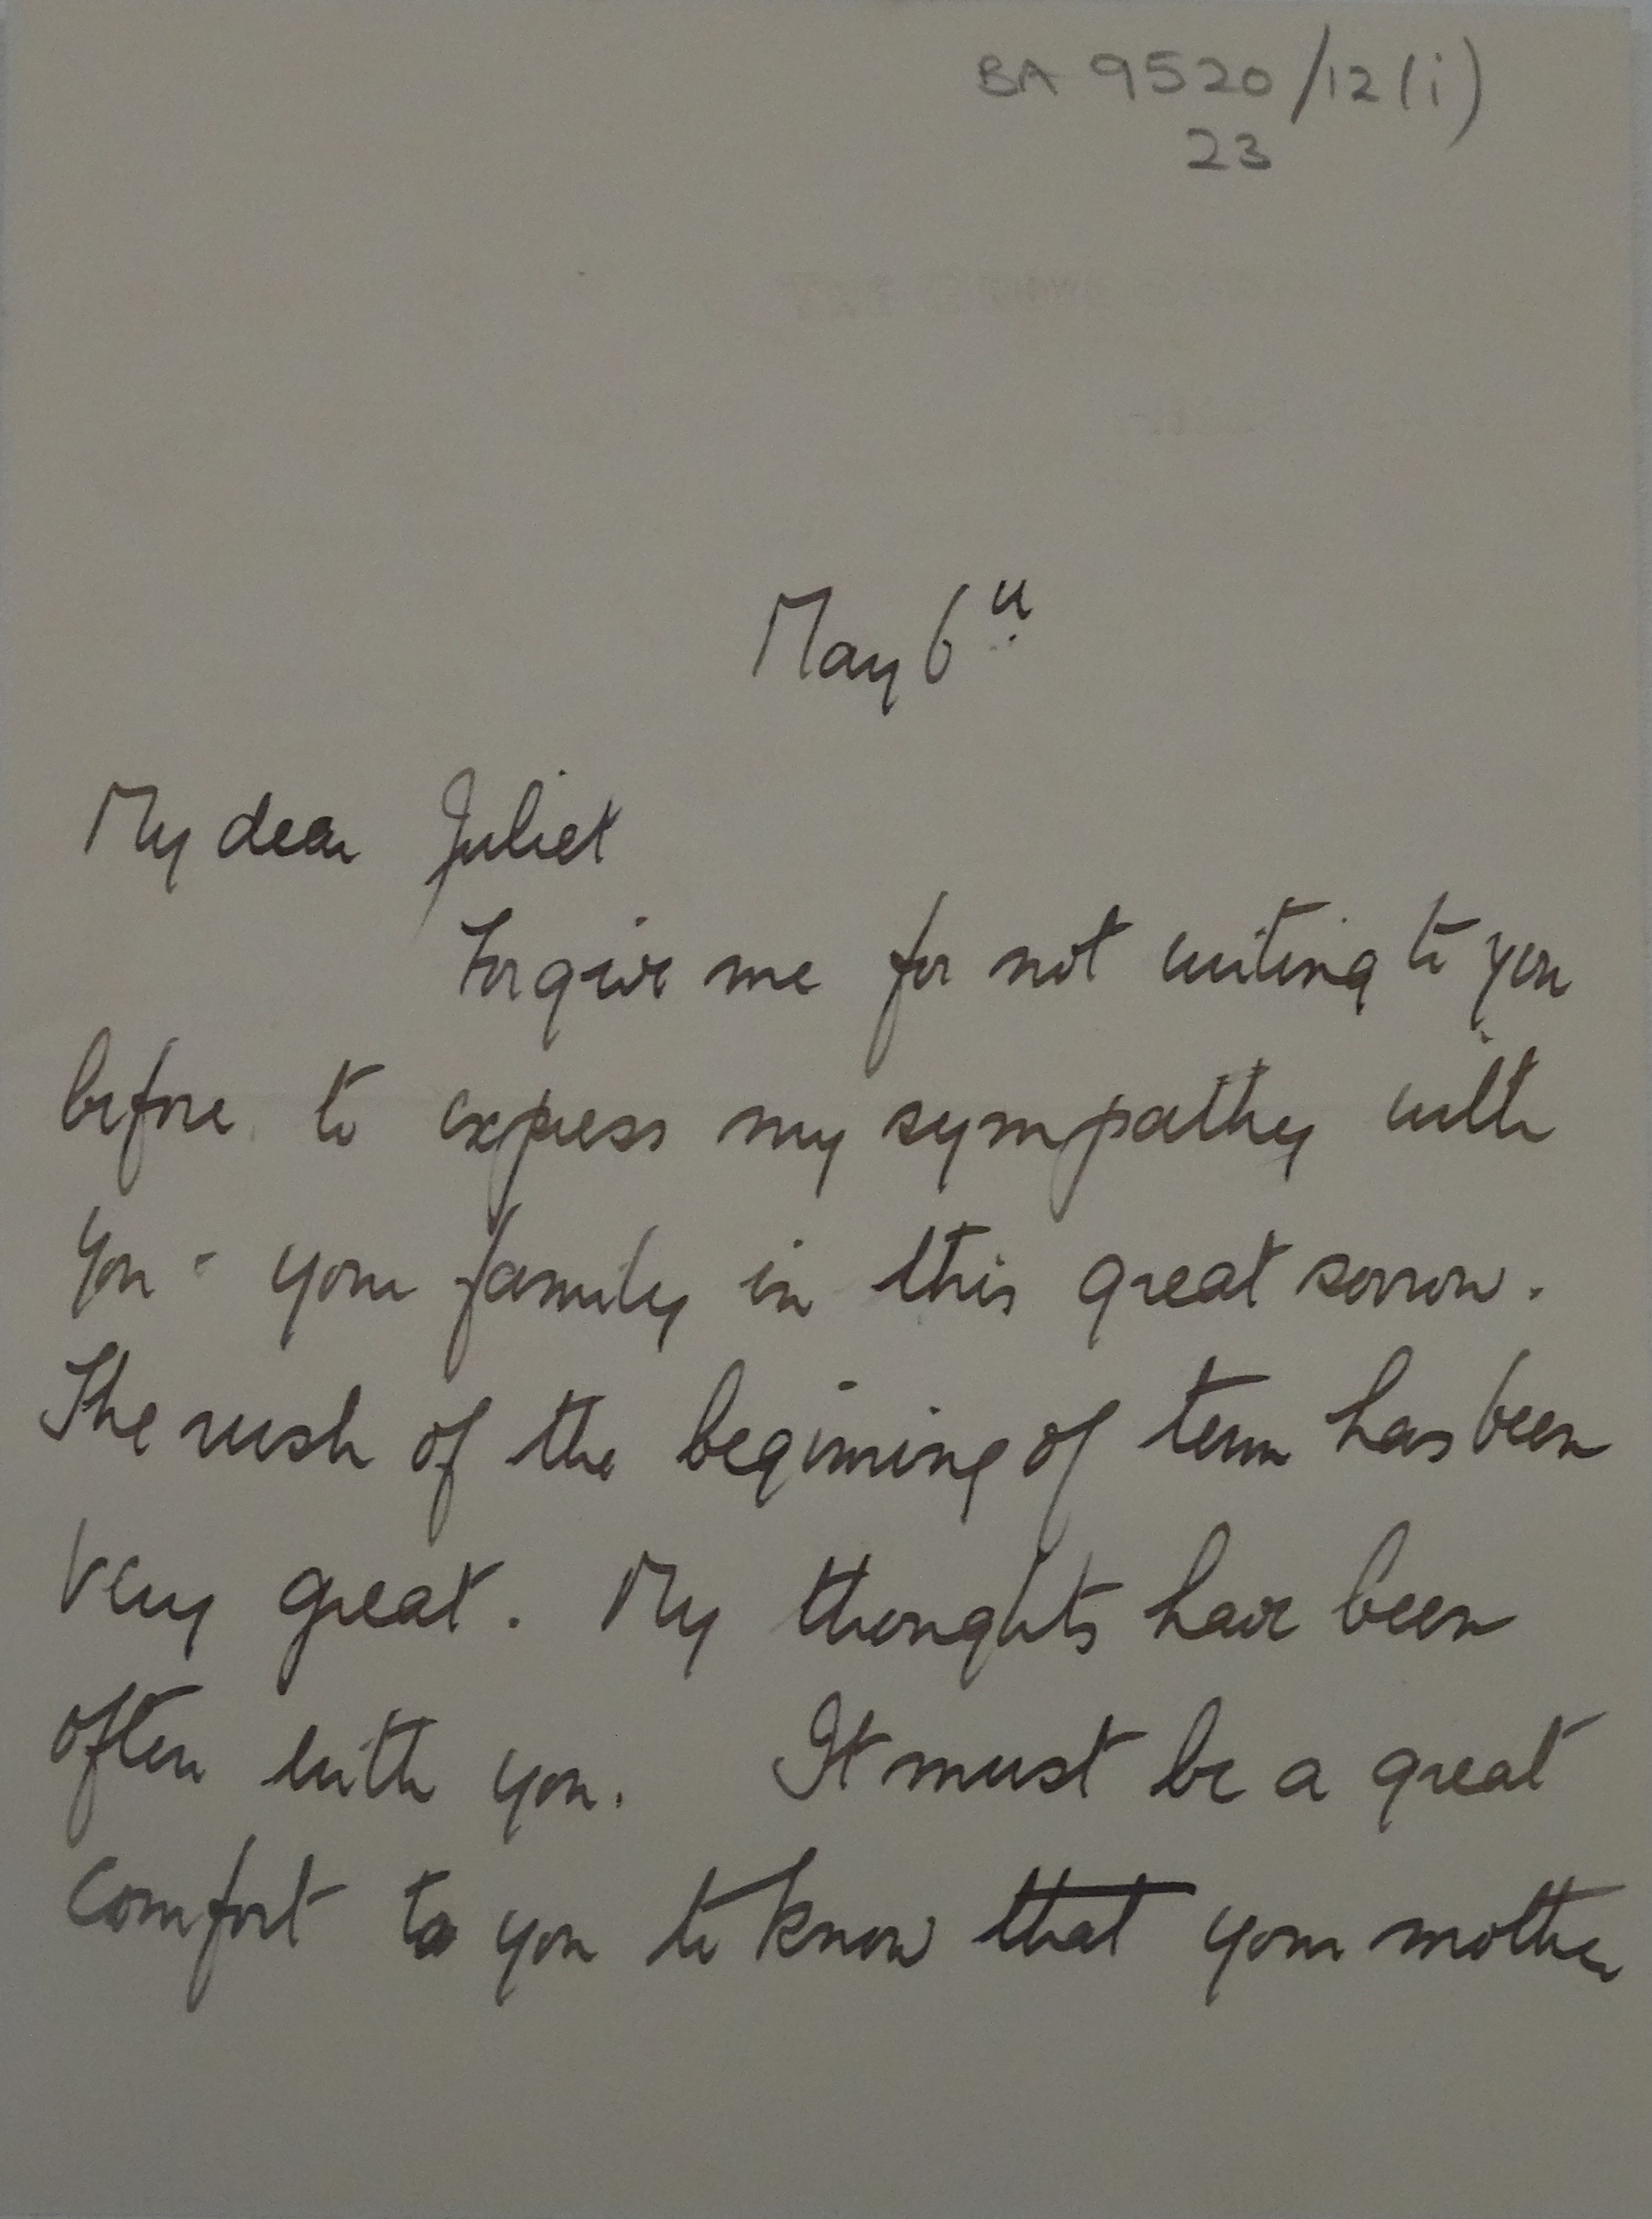 BA 9520/12(i)
23
May 6th
My dear Juliet
Forgive me for not writing to you
before to express my sympathy with
you & your family in this great sorrow.
The rush of the beginning of term has been
very great. My thoughts have been
often with you. It must be a great
comfort to you to know that your mother